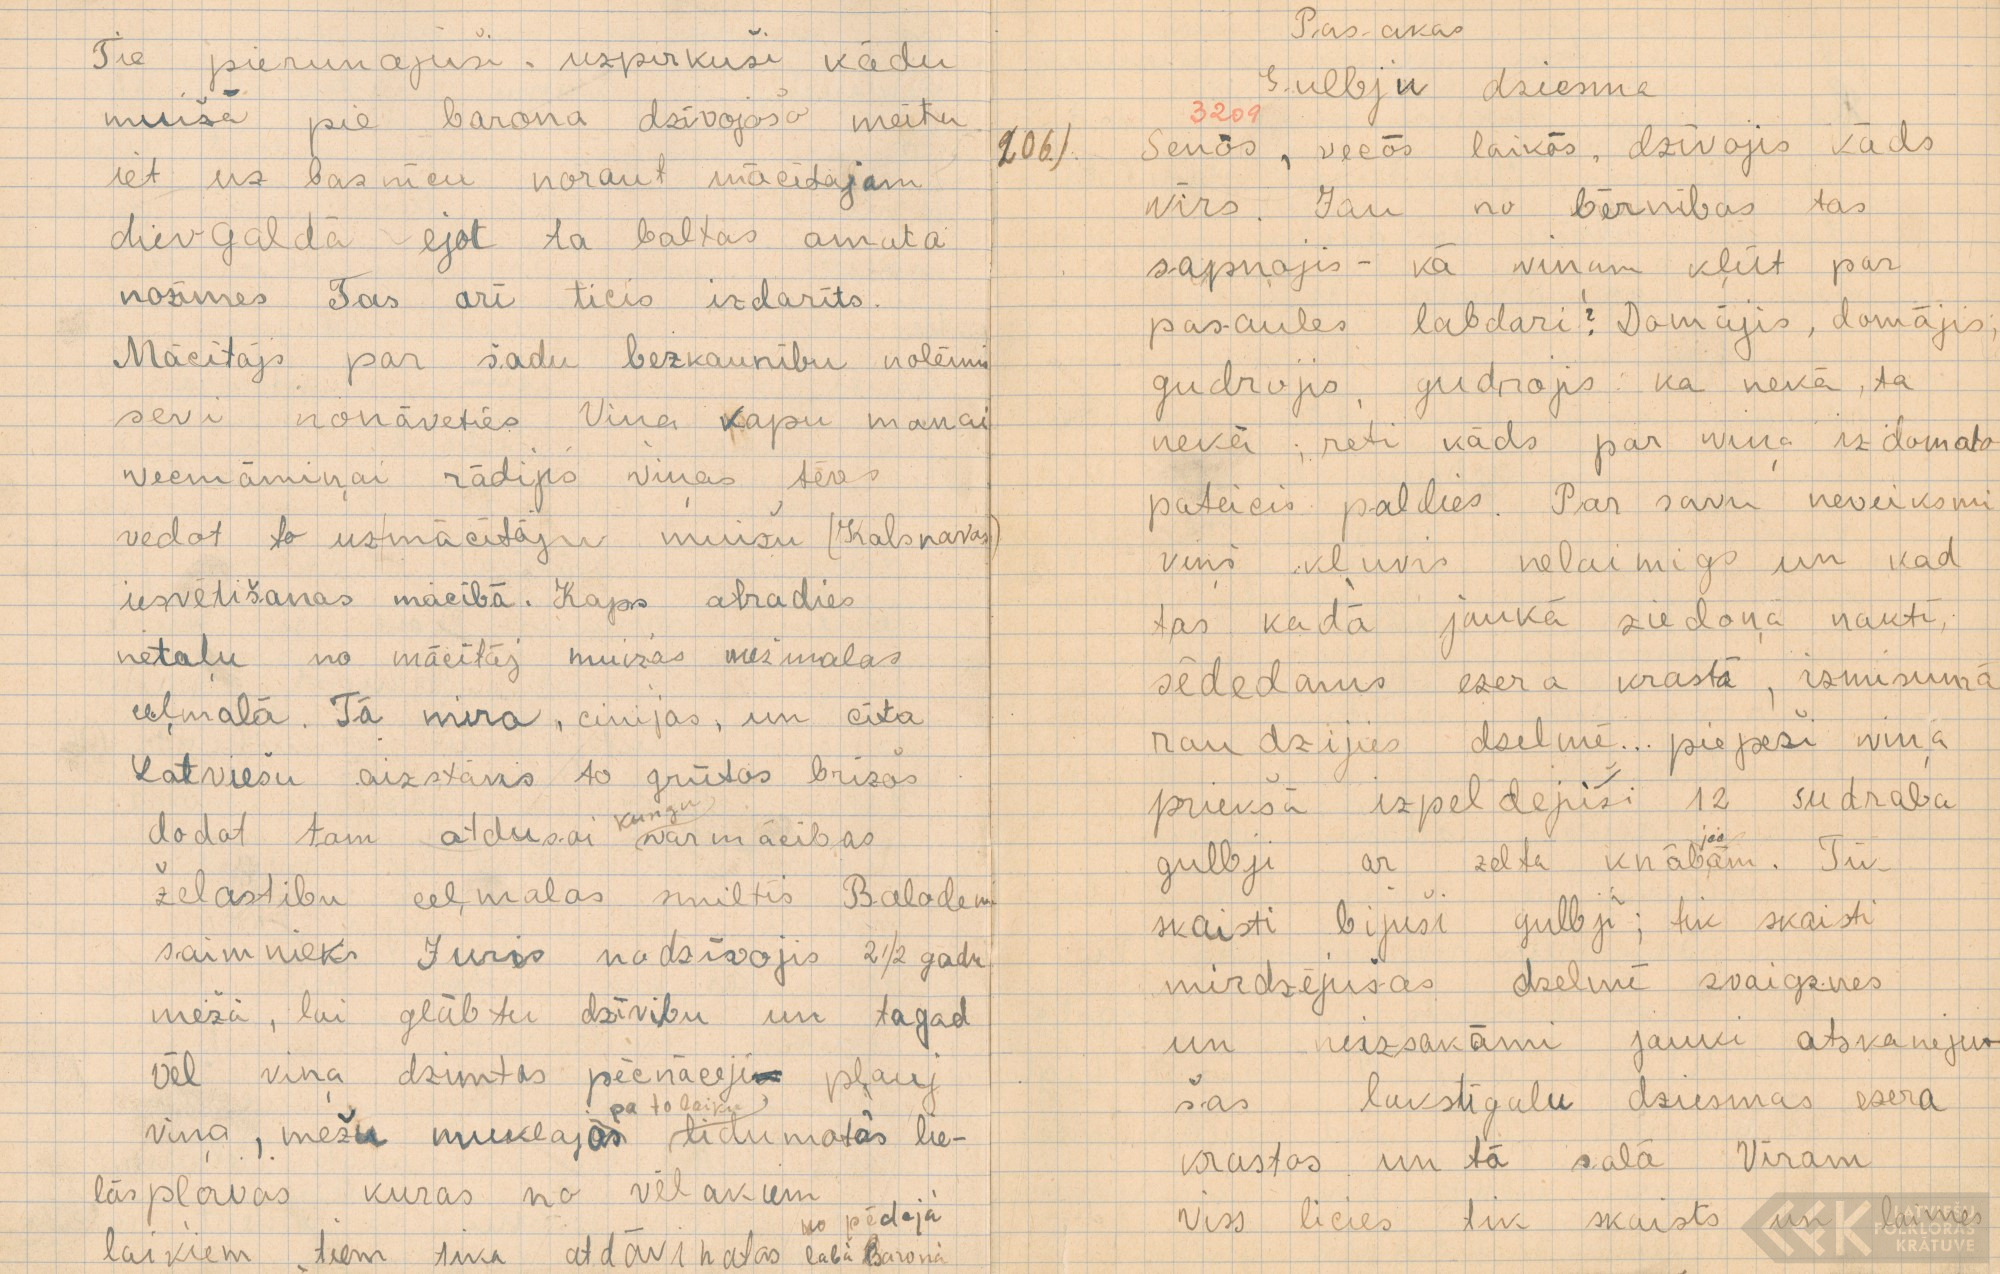 Tie pierunajuši. uzpirkuši kādu
muižā pie barona dzīvojošo meitu
iet uz baznicu noraut mācitājam
dievgaldā ejot ta baltas amata
nozimes Tas ari ticis izdarīts.
Mācitājs par šadu bezkaunību nolēmis
sevi nonāveties Viņa kapu manai
vecmāmiņai rādijis viņas tēvs
vedot to uz mācitāju muižu (Kalsnavas)
iesvētišanas mācibā. Kaps atradies
netaļu no mācitāj muižas mežmalas
ceļmalā. Tā mira, cinijas, un cita
Latviešu aizstāvis to grūtos brižos
dodot tam atdusai kungu varmācibas
želastibu ceļmalas smiltis Balodem
saimnieks Juris nodzīvojis 2 1/2 gadu
mežā, lai glābtu dzīvibu un tagad
vēl viņa dzimtas pēcnāceji pļauj
viņa, mežu muklajās pa to laiku lidumotās lie-
lās pļavas kuras no vēlakiem
laikiem tiem tika atdāvinatas no pēdejā labā Barona
Pasakas
Gulbju dziesma
3209
206/. Senōs, vecōs laikōs, dzīvojis kāds
vīrs. Jau no bērnības tas
sapņojis - kā viņam kļūt par
pasaules labdari? Domājis, domājis;
gudrojis, gudrojis: ka nekā, ta
nekā; reti kāds par viņa izdomato
pateicis paldies. Par savu neveiksmi
viņš kļuvis nelaimigs un kad
tas kadā jaukā ziedoņa nakti,
sēdedams ezera krastā, izmisumā
raudzijies dzelmē... piepeši viņa
priekšā izpeldejuši 12 sudraba
gulbji ar zelta knābjām. Tik
skaisti bijuši gulbji; tik skaisti
mirdzējušas dzelmē zvaigznes
un neizsakāmi jauki atskaneju-
šas lakstīgalu dziesmas ezera
krastos un tā salā Vīram
viss licies tik skaists un laimes
LATVIEŠU
FOLKLORAS
KRĀTUVE